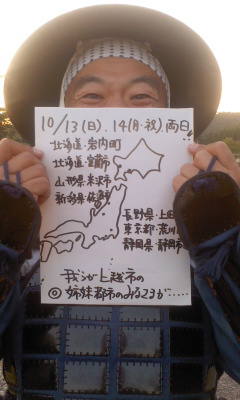 10/13(日).14(月・祝)両日!!
北海道・岩内町
北海道・室蘭市
山形県米沢市
新潟県佐渡市
長野県・上田
東京都・荒川
静岡県・静岡市
我らが上越市の
◎姉妹都市のみなさまが……